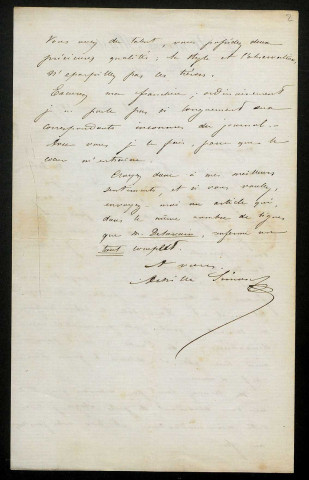 2
Vous avez du talent, vous possédez deux
précieuses qualités; le style et l'observation,
N'éparpillez pas les vôtres.
Excusez ma franchise; ordinairement
je ne parle pas si longuement aux
correspondants inconnus du journal. –
Avec vous je le fais, parce que le
cœur m'entraîne.
Croyez donc à mes meilleurs
sentiments, et si vous voulez,
envoyez-moi un article qui,
dans le même nombre de lignes
que M. renferme un
tout complet
A vous.
Simon